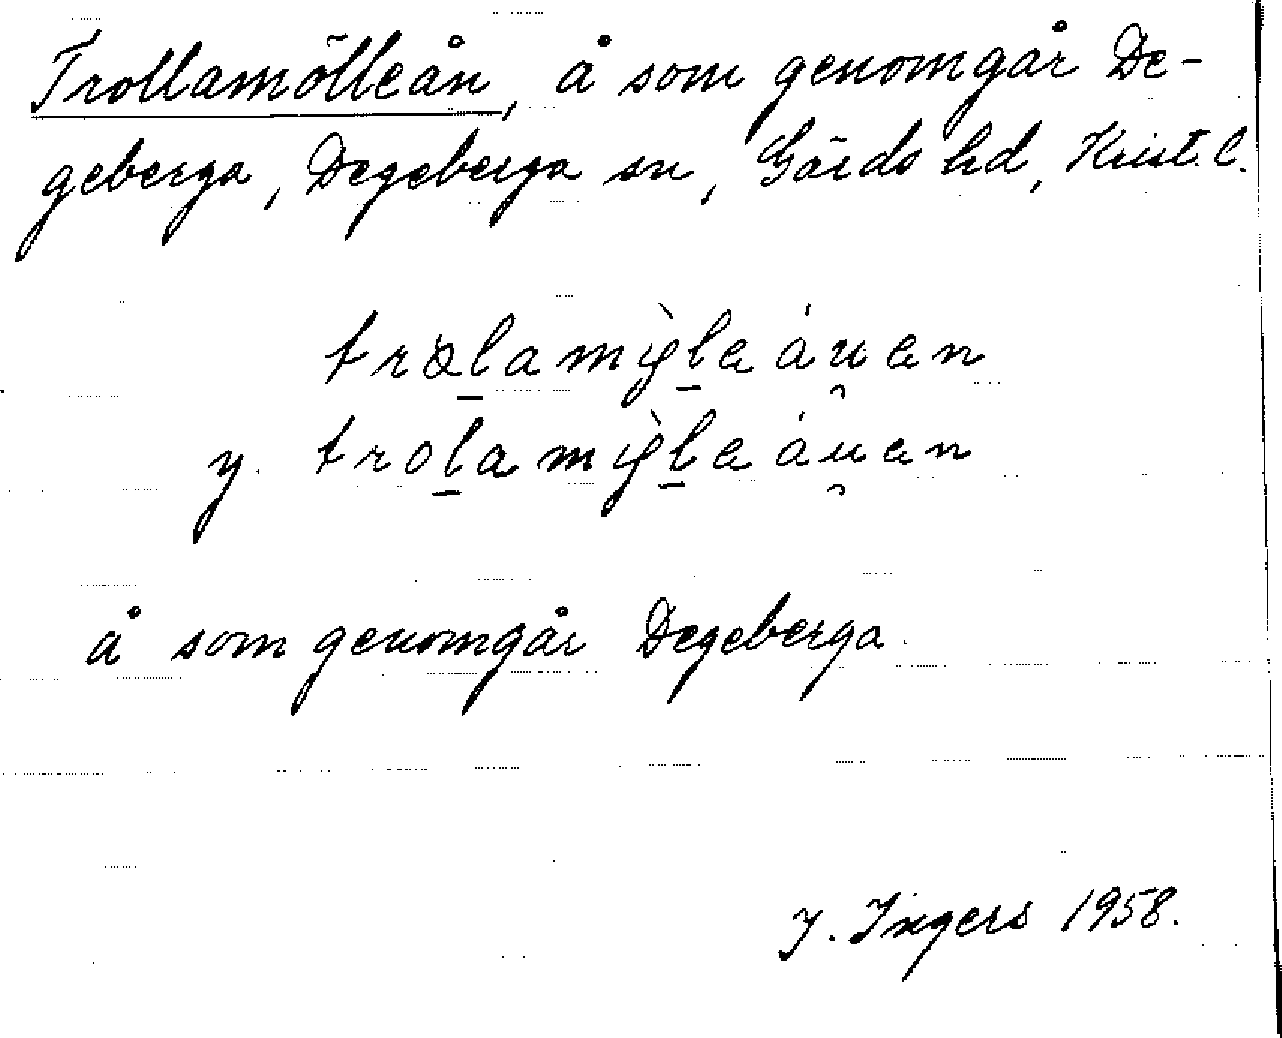 Trollamölleån, å som genomgår De-
geberga, Degeberga sn, Gärds hd, Krist. l.
tròlamỳleáu̯en
y. trolamỳleáu̯en
å som genomgår Degeberga.
I. Ingers 1958.